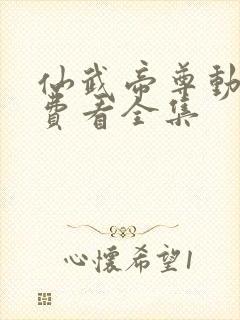 仙武帝尊動
費看全集
心懷希望1